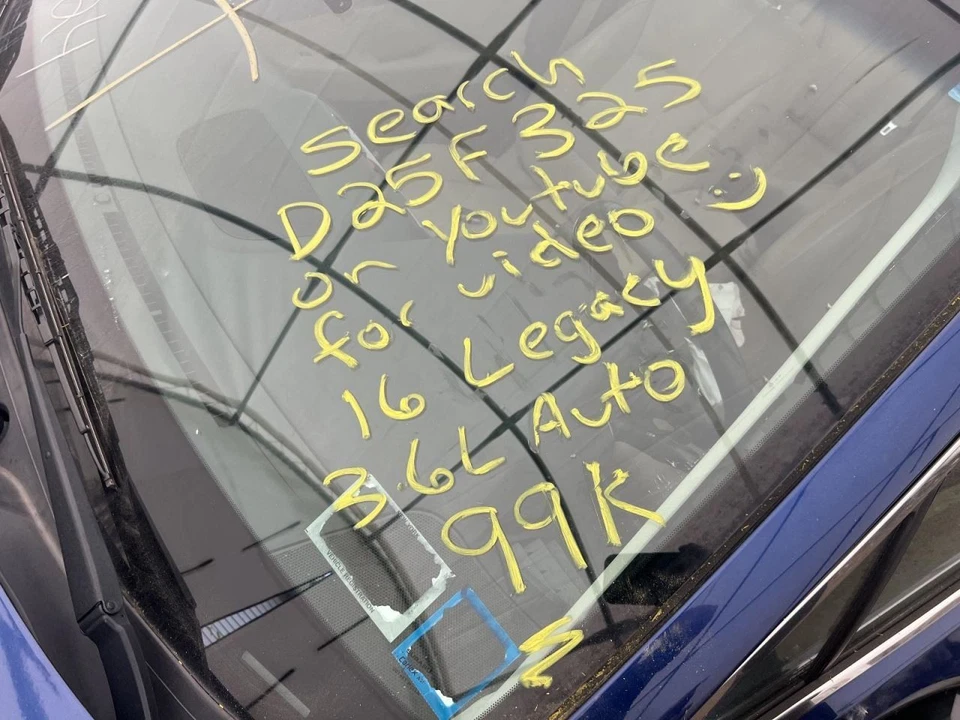 Search
D25F325
on Youtube
for video :)
16 Legacy
3.6L Auto
99K